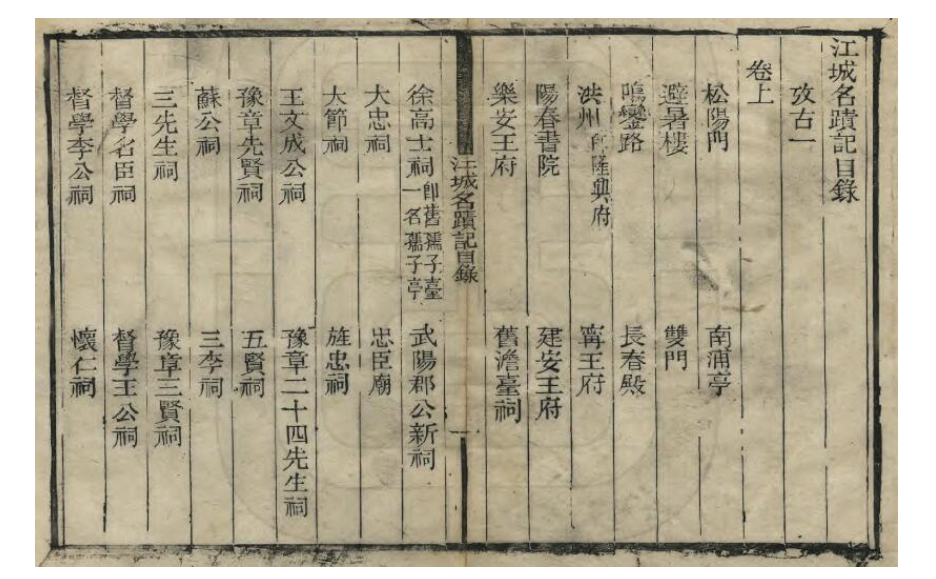 江城名蹟記目錄
攷古一
卷上
松陽門 南浦亭
避暑樓 雙門
鳴鑾路 長春殿
洪州即隆興府 寗王府
陽春書院 建安王府
樂安王府 舊澹臺祠
江城名蹟記目錄 一
徐高士祠即舊孺子臺一名孺子亭 武陽郡公新祠
大忠祠 忠臣廟
大節祠 旌忠祠
王文成公祠 豫章二十四先生祠
豫章先賢祠 五賢祠
蘇公祠 三李祠
三先生祠 豫章三賢祠
督學名臣祠 督學王公祠
督學李公祠 懷仁祠